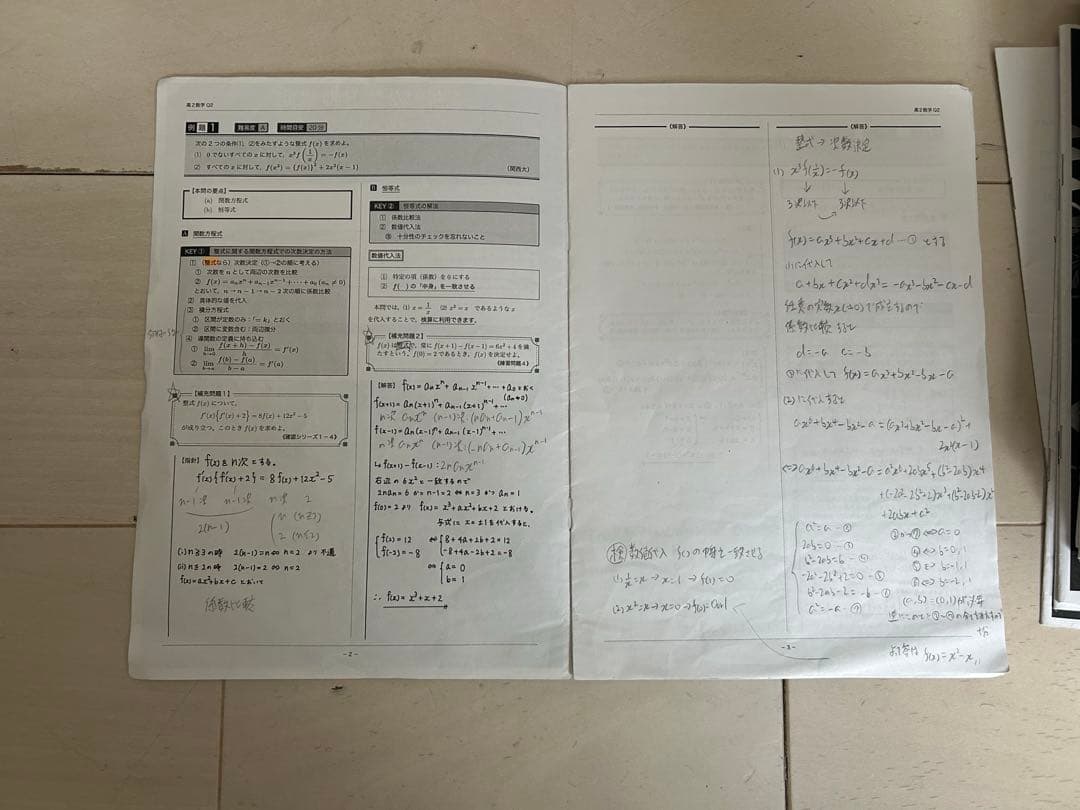 高2数学 Q2
例題 1 難易度 A 時間目安 20分
次の2つの条件(1), (2)をみたすような整式 f(x) を求めよ。
(1) 0でないすべての x に対して, x³f(1/x) = −f(x)
(2) すべての x に対して, f(x²) = {f(x)}² + 2x²(x−1)
(関西大)
【本問の要点】
(a) 関数方程式
(b) 恒等式
A 関数方程式
KEY ① 整式に関する関数方程式での次数決定の方法
① (整式なら) 次数決定 (①→②の順に考える)
① 次数を n として両辺の次数を比較
② f(x) = aₙxⁿ + aₙ₋₁xⁿ⁻¹ + ⋯ + a₀ (aₙ ≠ 0)
とおいて, n → n−1 → n−2 次の順に係数比較
② 具体的な値を代入
③ 積分方程式
① 区間が定数のみ:「= k」とおく
② 区間に変数含む:両辺微分
④ 導関数の定義に持ち込む
① lim h→0 f(x+h) − f(x) / h = f'(x)
② lim b→a f(b) − f(a) / b − a = f'(a)
【補充問題1】
整式 f(x) について,
f'(x){f'(x)+2} = 8f(x) + 12x² − 5
が成り立つ, このとき f(x) を求めよ。
《確認シリーズ1−4》
【指針】 f(x)をn次とする。
f'(x){f'(x)+2} = 8f(x)+12x²−5
n−1次 n−1次 n次 2
2(n−1)
n (n≧3)
2 (n≦2)
(i) n≧3の時 2(n−1)=n ⇔ n=2 より不適
(ii) n≦2の時 2(n−1)=2 ⇔ n=2
f(x)=ax²+bx+c とおいて
係数比較
B 恒等式
KEY ② 恒等式の解法
① 係数比較法
② 数値代入法
⑧ 十分性のチェックを忘れないこと
数値代入法
① 特定の項(係数)を0にする
② f( ) の「中身」を一致させる
本問では, (1) x = 1/x (2) x² = x であるような x
を代入することで, 検算に利用できます。
【補充問題2】
f(x) は整式で, 常に f(x+1) − f(x−1) = 6x² + 4 を満
たすという。f(0) = 2 であるとき, f(x) を決定せよ。
《練習問題4》
【解答】 f(x)=aₙxⁿ+aₙ₋₁xⁿ⁻¹+⋯+a₀ とおく
(aₙ≠0)
f(x+1)=aₙ(x+1)ⁿ+aₙ₋₁(x+1)ⁿ⁻¹+⋯
n次:aₙxⁿ (n−1)次:(naₙ+aₙ₋₁)xⁿ⁻¹
f(x−1)=aₙ(x−1)ⁿ+aₙ₋₁(x−1)ⁿ⁻¹+⋯
n次:aₙxⁿ (n−1)次:(−naₙ+aₙ₋₁)xⁿ⁻¹
↳f(x+1)−f(x−1):2naₙxⁿ⁻¹
右辺の6x²と一致するので
2naₙ=6 かつ n−1=2 ⇔ n=3 かつ aₙ=1
f(0)=2より f(x)=x³+ax²+bx+2 とおける。
与式に x=±1を代入すると、
f(2)=12 ⇔ 8+4a+2b+2=12
f(−2)=−8 −8+4a−2b+2=−8
⇔ a=0
b=1
∴ f(x)=x³+x+2
-2-
高2数学 Q2
《解答》
検 数値代入 f( )の中身を一致させる
(1) 1/x=x → x=1 → f(1)=0
(2) x²=x → x=0 → f(0)=0or1
《解答》
整式→次数決定
(1) x³f(1/x)=−f(x)
3次以下 3次以下
f(x)=ax³+bx²+cx+d −① とする
(1)に代入して
a+bx+cx²+dx³=−ax³−bx²−cx−d
任意の実数x(≠0)で成立するので
係数比較すると
d=−a c=−b
①に代入して f(x)=ax³+bx²−bx−a
(2)に代入すると
ax⁶+bx⁴−bx²−a=(ax³+bx²−bx−a)²+
2x²(x−1)
⇔ax⁶+bx⁴−bx²−a=a²x⁶+2abx⁵+(b²−2ab)x⁴
+(−2a²−2b²+2)x³+(b²−2ab−2)x²
+2abx+a²
a²=a −②
2ab=0 −③
b²−2ab=b −④
−2a²−2b²+2=0 −⑤
b²−2ab−2=−b −⑥
a²=−a −⑦
②かつ⑦⇔a=0
④⇔b=0,1
⑤⇔b=−1,1
⑥⇔b=−2,1
(a,b)=(0,1)が必要
十分
よって答は f(x)=x²−x
-3-